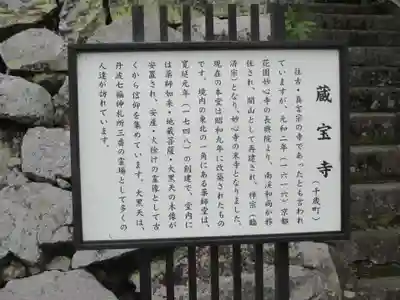 蔵宝寺
(千歳町)
往古・真言宗の寺であったとも言われ
ていますが、元和二年(一六一六)京都
花園妙心寺の長興院より、南渓和尚が移
住され、開山として再建され、禅宗(臨
済宗)となり、妙心寺の末寺となりました。
現在の本堂は昭和九年に改築されたもの
です。境内の東北の一角にある薬師堂は、
寛延元年(一七四八)の創建で、堂内に
は薬師如来・地蔵菩薩・大黒天の木像が
安置され、安産・火除けの霊像として古
くから信仰を集めています。大黒天は、
丹波七福神札所三番の霊場として多くの
人達が訪れています。